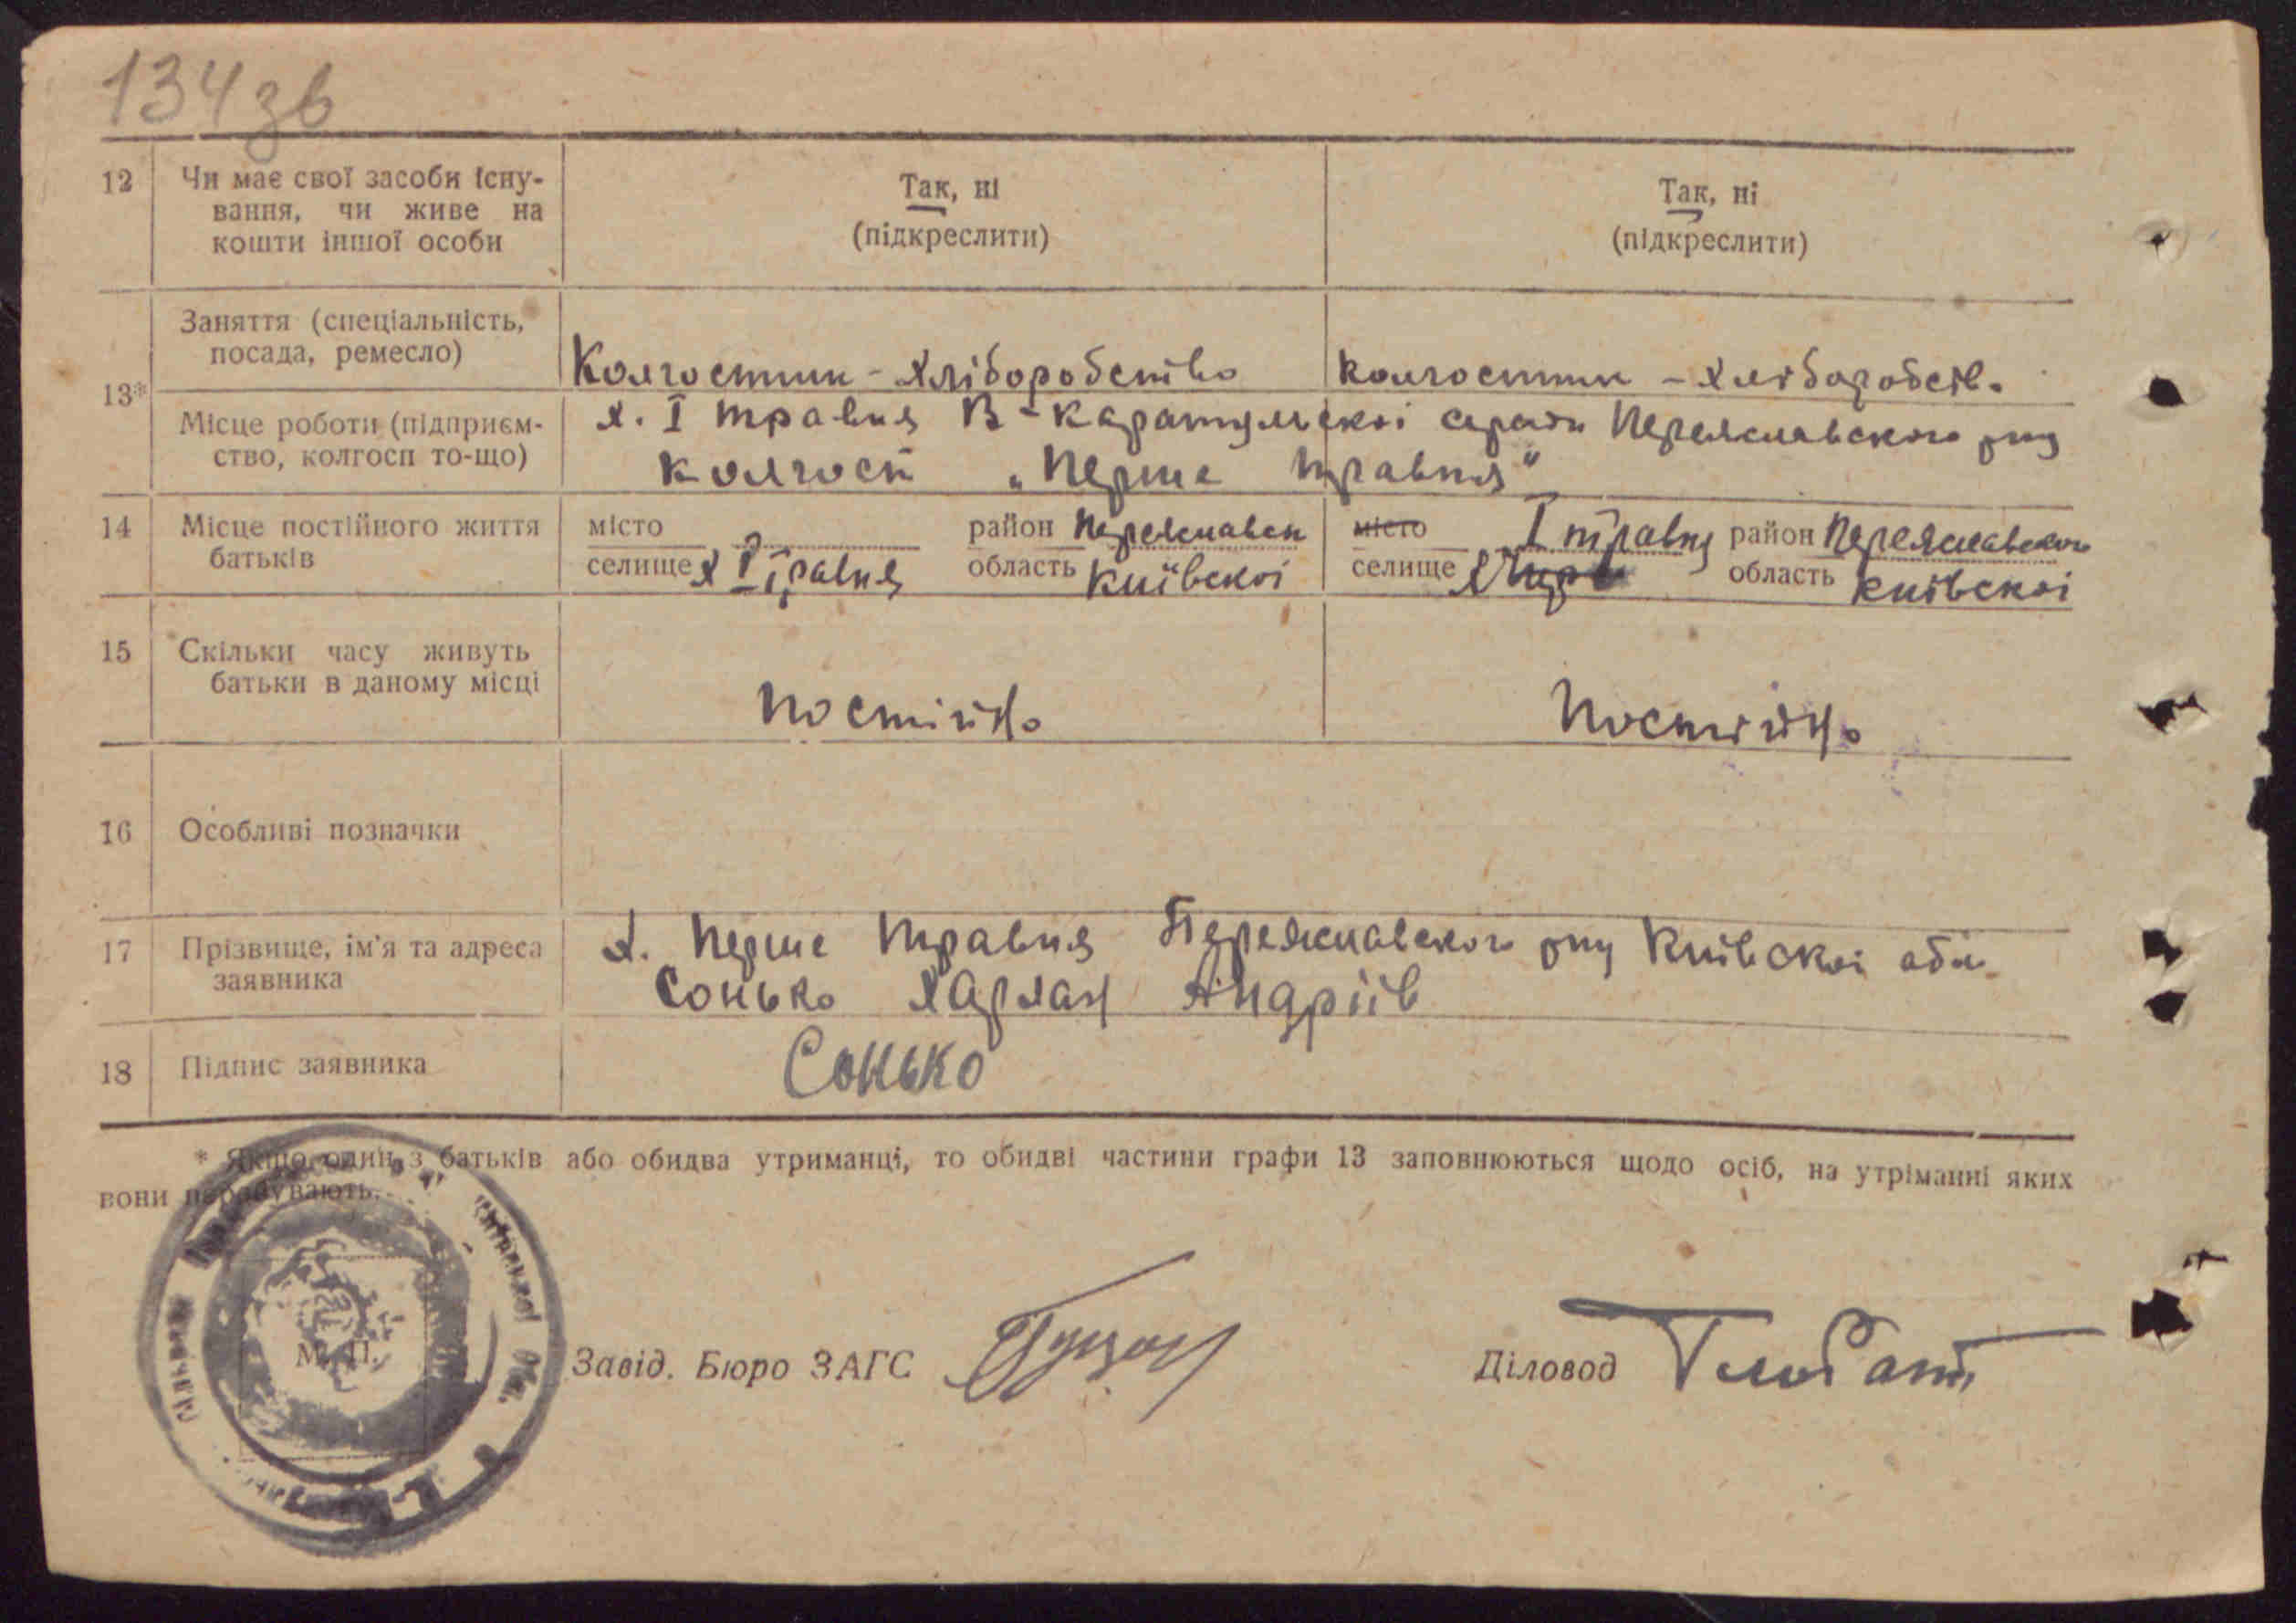 134 зв
12 Чи має свої засоби існу- Так, ні Так, ні
вання, чи живе на (підкреслити) (підкреслити)
кошти іншої особи
Заняття (спеціальність,
посада, ремесло) Колгоспник - хліборобство колгоспник - хлібороб
13*
Місце роботи (підприєм- х. I травня В-Каратульскої сради Переяславского рну
ство, колгосп то-що) колгосп „Перше травня"
14 Місце постійного життя місто район Переяславск місто I травня район Переяславского
батьків селище х I травня область Київскої селище х область Київскої
15 Скільки часу живуть
батьки в даному місці постійно постійно
16 Особливі позначки
17 Прізвище, ім'я та адреса х. Перше травня Переяславского рну Київскої обл.
заявника Сонько Харлан Андріїв
18 Підпис заявника Сонько
* Якщо один з батьків або обидва утриманці, то обидві частини графи 13 заповнюються щодо осіб, на утріманні яких
вони перебувають.
М. П.
Завід. Бюро ЗАГС Діловод